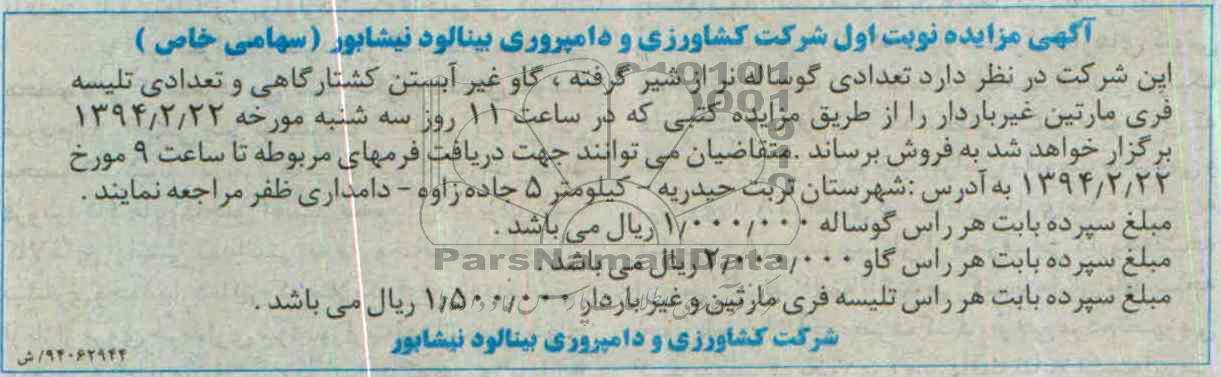 آگهی مزایده نوبت اول شرکت کشاورزی و دامپروری بینالود نیشابور (سهامی خاص)
این شرکت در نظر دارد تعدادی گوساله نر از شیر گرفته ، گاو غیر آبستن کشتارگاهی و تعدادی تلیسه
فری مارتین غیرباردار را از طریق مزایده کتبی که در ساعت ۱۱ روز سه شنبه مورخه ۱۳۹۴/۲/۲۲
برگزار خواهد شد به فروش برساند .متقاضیان می توانند جهت دریافت فرمهای مربوطه تا ساعت ۹ مورخ
۱۳۹۴/۲/۲۲ به آدرس :شهرستان تربت حیدریه - کیلومتر ۵ جاده زاوه - دامداری ظفر مراجعه نمایند .
مبلغ سپرده بابت هر راس گوساله ۱/۰۰۰/۰۰۰ ریال می باشد .
مبلغ سپرده بابت هر راس گاو ۲/۰۰۰/۰۰۰ ریال می باشد .
مبلغ سپرده بابت هر راس تلیسه فری مارثین و غیر باردار ۱/۵۰۰/۰۰۰ ریال می باشد .
شرکت کشاورزی و دامپروری بینالود نیشابور
۹۴۰۶۲۹۴۴/ ش
ParsNamadData